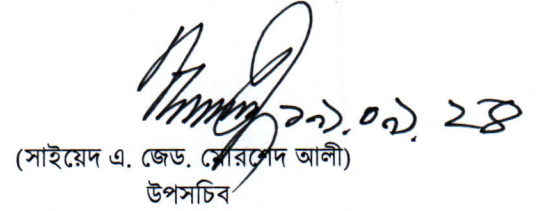 ১৯.০৯.২৪
(সাইয়েদ এ. জেড. মোরশেদ আলী)
উপসচিব